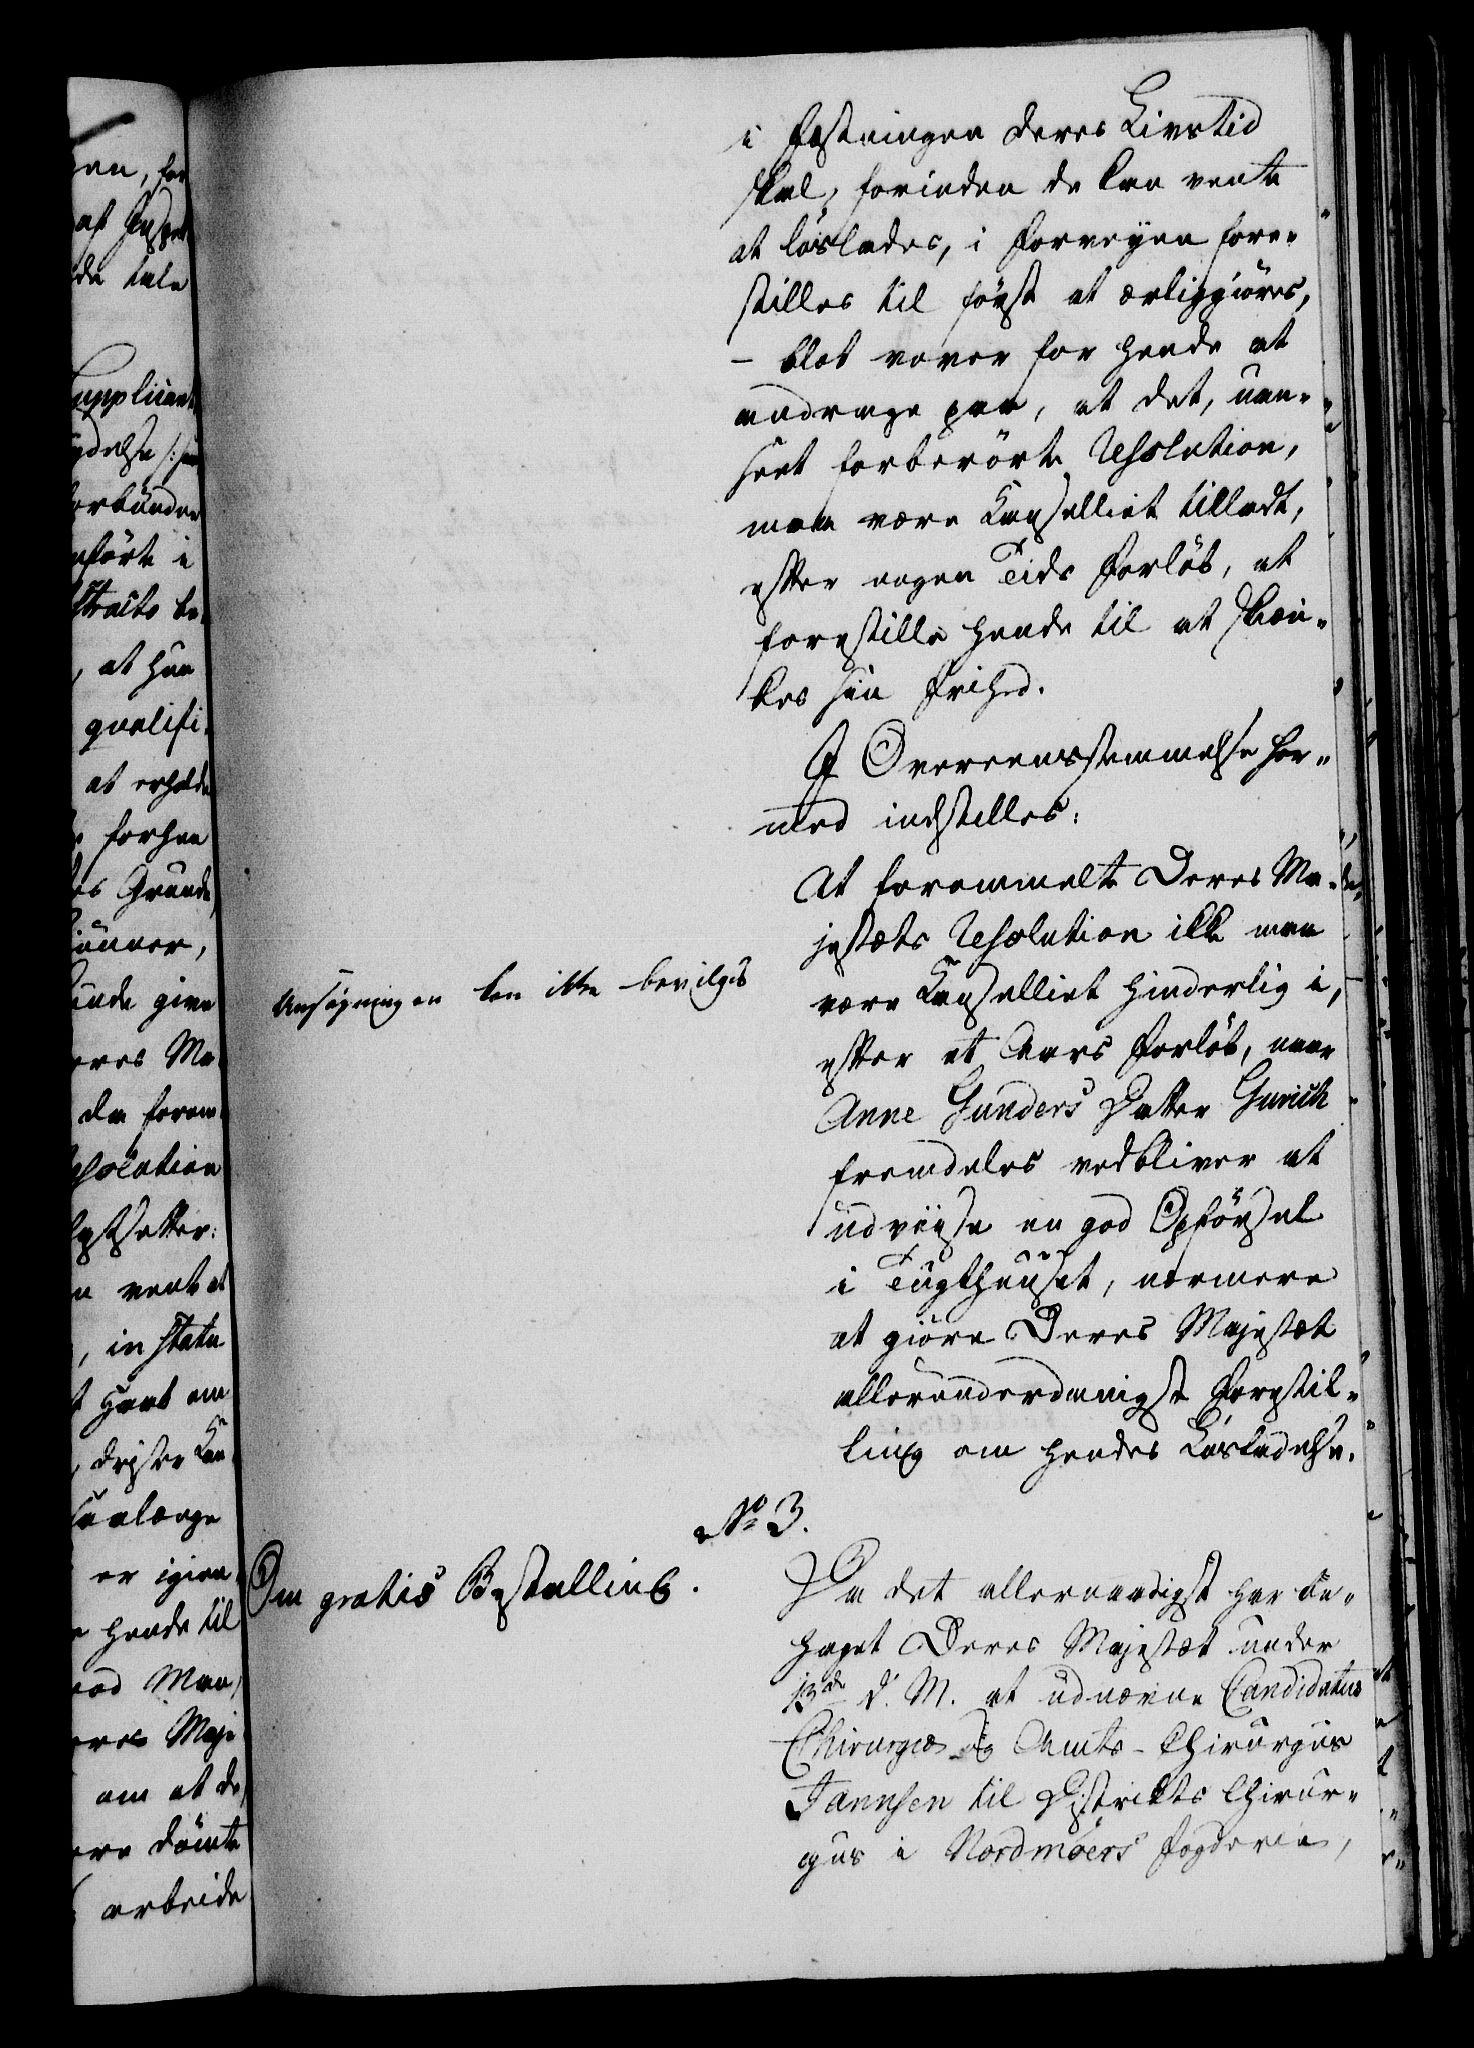 i Fæstningen deres Livstid
skal, forinden de kan vente
at løslades, i Forveyen fore-
stilles til først at ærliggiøres,
– blot vover for hende at
andrage paa, at det, uan-
seet forberørte Resolution,
maa være Cancelliet tilladt,
efter nogen Tids Forløb, at
forestille hende til at skien-
kes sin Frihed.
I Overeensstemmelse her-
med indstilles:
At forommelte Deres Ma-
jestæts Resolution ikke maa
være Cancelliet hinderlig i,
efter et Aars Forløb, naar
Anne Gunders Datter Gurich
fremdeles vedbliver at
udviise en god Opførsel
i Tugthuuset, nærmere
at giøre Deres Majestæt
allerunderdanigst Forestil-
ling om hendes Løsladelse.
Ansøgningen kan ikke bevilges
No 3.
Om gratis Bestalling.
Da det allernaadigst har be-
haget Deres Majestæt under
13de d. M. at udnævne Candidatus
Chirurgiæ og Amts-Chirurgus
Jannsen til Districts Chirur-
gus i Nordmøers Fogderie,